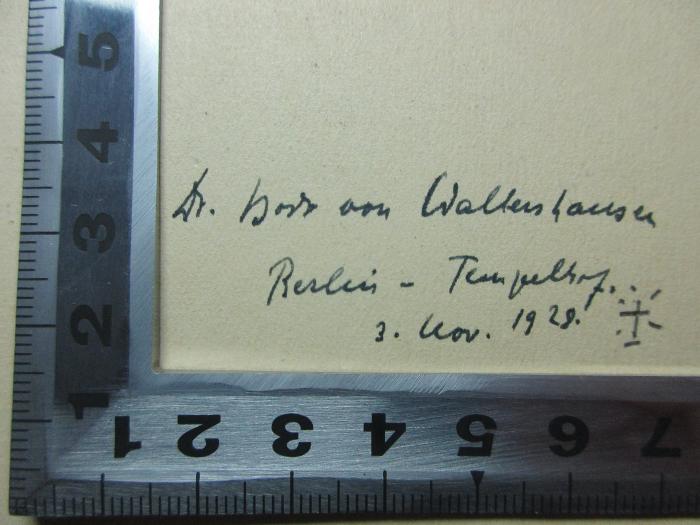 Dr. Bodo von Waltershausen
Berlin - Tempelhof.
3. Nov. 1928.
5
4
3
2
1
1 2 3 4 5 6 7